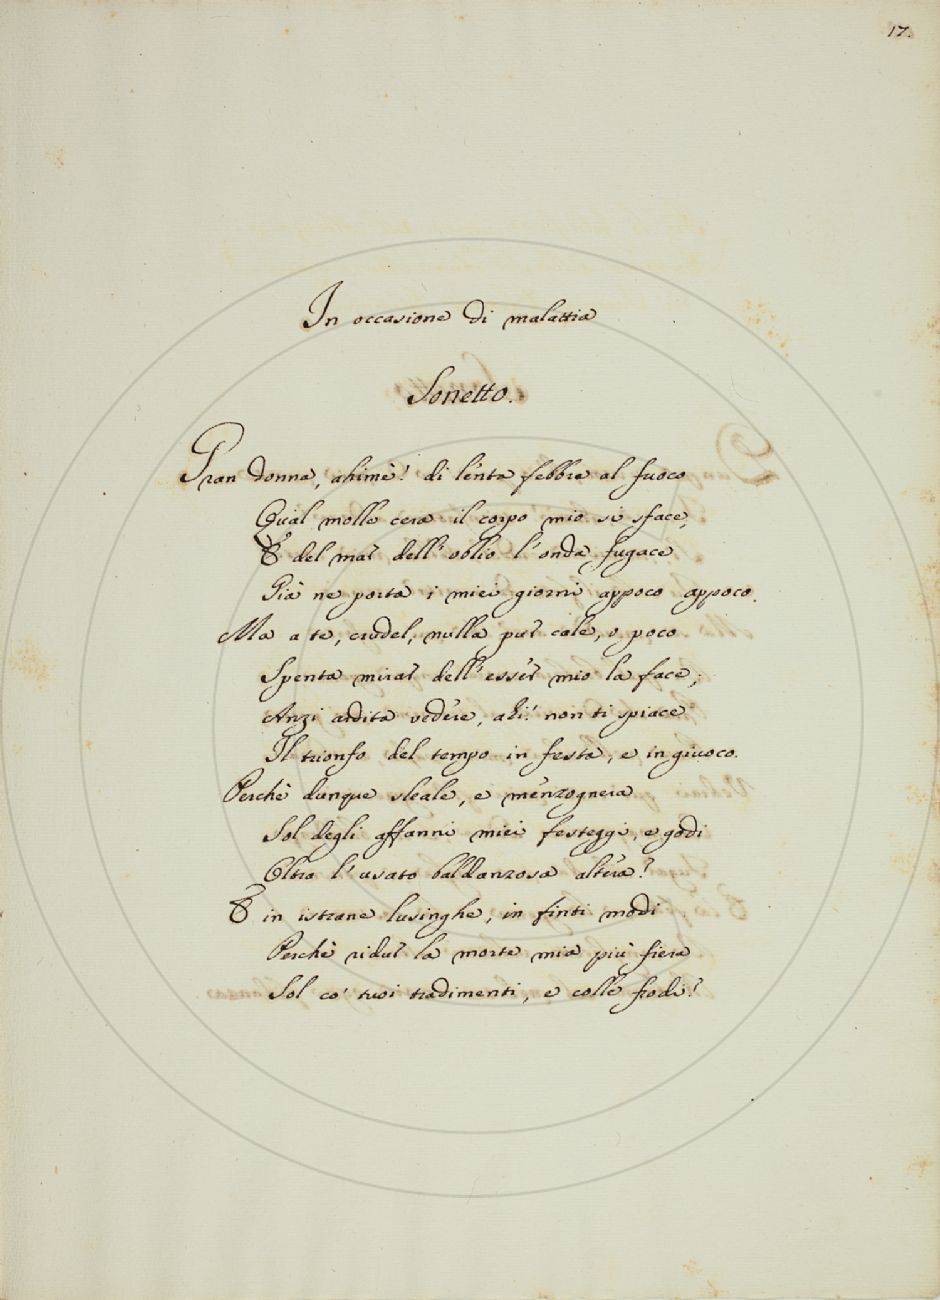 17.
In occasione di malattia
Sonetto.
Gran donna, ahimè! di lenta febbre al fuoco
Qual molle cera il corpo mio si sface,
E del mar dell' oblio l' onda fugace
Già ne porta i miei giorni appoco appoco.
Ma a te, crudel, nulla pur cale, o poco
Spenta mirar dell' esser mio la face;
Anzi ardita vedere, ahi! non ti spiace
Il trionfo del tempo in festa, e in giuoco.
Perchè dunque sleale, e menzognera
Sol degli affanni miei festeggi, e godi
Oltra l' usato baldanzosa altera?
E in istrane lusinghe, in finti modi
Perchè ridur la morte mia più fiera
Sol co' tuoi tradimenti, e colle frodi?